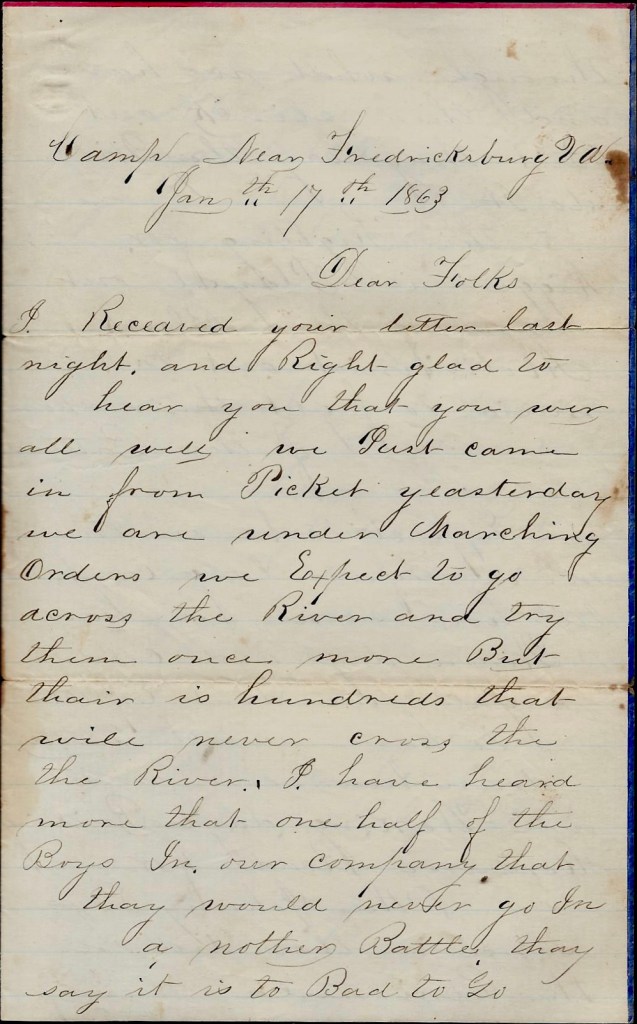 Camp Near Fredricksburg VA.
Jan th 17 th 1863
Dear Folks
I. Receaved your letter last
night. and Right glad to
hear you that you wer
all well we Just came
in from Picket yeasterday
we are under Marching
Orders we Expect to go
across the River and try
them once more But
thair is hundreds that
will never cross the
the River. I. have heard
more that one half of the
Boys In. our company that
thay would never go In
a nother Battle thay
say it is to Bad to Go